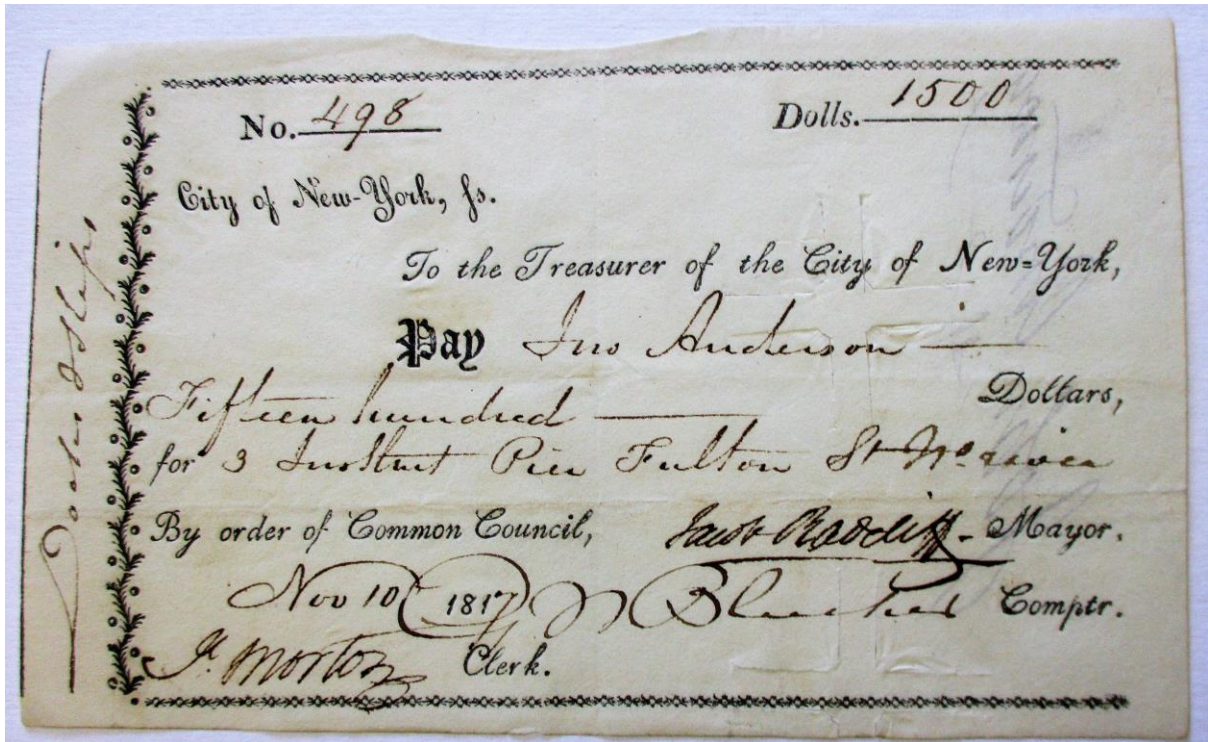 No. 498 Dolls. 1500
City of New-York, ſs.
To the Treasurer of the City of New=York,
Pay Jno Anderson
Fifteen hundred Dollars,
for 3 Instmt Pier Fulton St No. river
By order of Common Council, Jacob Radcliff Mayor.
Nov 10 1817 Bleecker Comptr.
Jn. Morton Clerk.
Docks & Slips